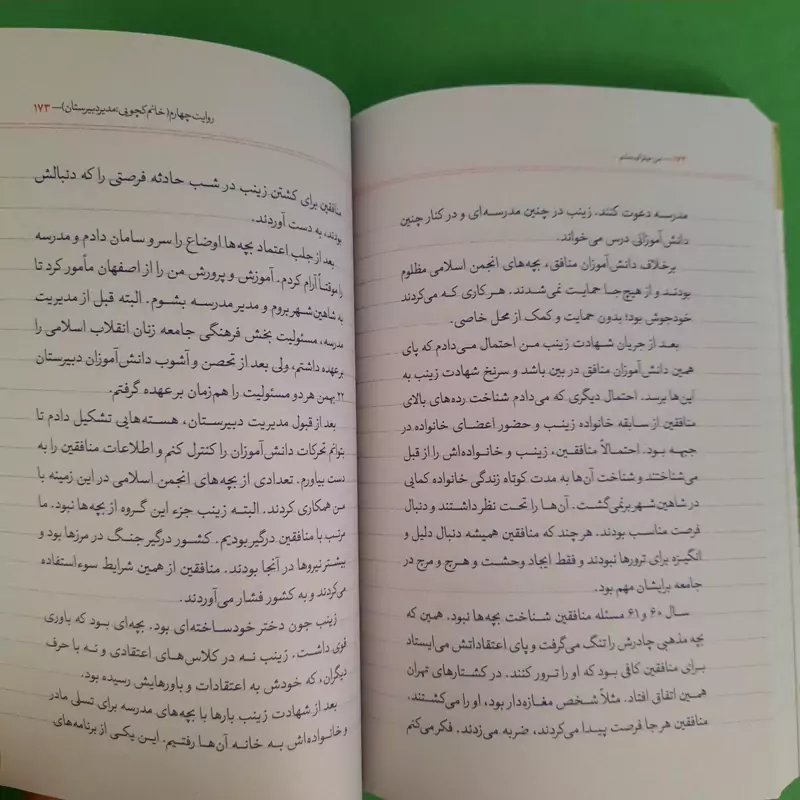 ۱۷۲ — من میترا نیستم
مدرسه دعوت کنند. زینب در چنین مدرسه‌ای و در کنار چنین
دانش‌آموزانی درس می‌خواند.
برخلاف دانش‌آموزان منافق، بچه‌های انجمن اسلامی مظلوم
بودند و از هیچ جا حمایت نمی‌شدند. هر کاری که می‌کردند
خودجوش بود؛ بدون حمایت و کمک از محل خاصی.
بعد از جریان شهادت زینب من احتمال می‌دادم که پای
همین دانش‌آموزان منافق در بین باشد و سرنخ شهادت زینب به
این‌ها برسد. احتمال دیگری که می‌دادم شناخت رده‌های بالای
منافقین از سابقه خانواده زینب و حضور اعضای خانواده در
جبهه بود. احتمالاً منافقین، زینب و خانواده‌اش را از قبل
می‌شناختند و شناخت آن‌ها به مدت کوتاه زندگی خانواده کمایی
در شاهین شهر برنمی‌گشت. آن‌ها را تحت نظر داشتند و دنبال
فرصت مناسب بودند. هر چند که منافقین همیشه دنبال دلیل و
انگیزه برای ترورها نبودند و فقط ایجاد وحشت و هرج و مرج در
جامعه برایشان مهم بود.
سال ۶۰ و ۶۱ مسئله منافقین شناخت بچه‌ها نبود. همین که
بچه مذهبی چادرش را تنگ می‌گرفت و پای اعتقاداتش می‌ایستاد
برای منافقین کافی بود که او را ترور کنند. در کشتارهای تهران
همین اتفاقی افتاد. مثلاً شخص مغازه‌دار بود، او را می‌کشتند.
منافقین هر جا فرصت پیدا می‌کردند، ضربه می‌زدند. فکر می‌کنم
روایت چهارم (خانم کچویی؛ مدیر دبیرستان) — ۱۷۳
منافقین برای کشتن زینب در شب حادثه فرصتی را که دنبالش
بودند، به دست آوردند.
بعد از جلب اعتماد بچه‌ها اوضاع را سر و سامان دادم و مدرسه
را موقتاً آرام کردم. آموزش و پرورش من را از اصفهان مأمور کرد تا
به شاهین شهر بروم و مدیر مدرسه بشوم. البته قبل از مدیریت
مدرسه، مسئولیت بخش فرهنگی جامعه زنان انقلاب اسلامی را
بر عهده داشتم، ولی بعد از تحصن و آشوب دانش‌آموزان دبیرستان
۲۲ بهمن هر دو مسئولیت را هم‌زمان بر عهده گرفتم.
بعد از قبول مدیریت دبیرستان، هسته‌هایی تشکیل دادم تا
بتوانم تحرکات دانش‌آموزان را کنترل کنم و اطلاعات منافقین را به
دست بیاورم. تعدادی از بچه‌های انجمن اسلامی در این زمینه با
من همکاری کردند. البته زینب جزء این گروه از بچه‌ها نبود. ما
مرتب با منافقین درگیر بودیم. کشور درگیر جنگ در مرزها بود و
بیشتر نیروها در آنجا بودند. منافقین از همین شرایط سوءاستفاده
می‌کردند و به کشور فشار می‌آوردند.
زینب جون دختر خودساخته‌ای بود. بچه‌ای بود که باوری
قوی داشت. زینب نه در کلاس‌های اعتقادی و نه با حرف
دیگران، که خودش به اعتقادات و باورهایش رسیده بود.
بعد از شهادت زینب بارها با بچه‌های مدرسه برای تسلی مادر
و خانواده‌اش به خانه آن‌ها رفتیم. این یکی از برنامه‌های